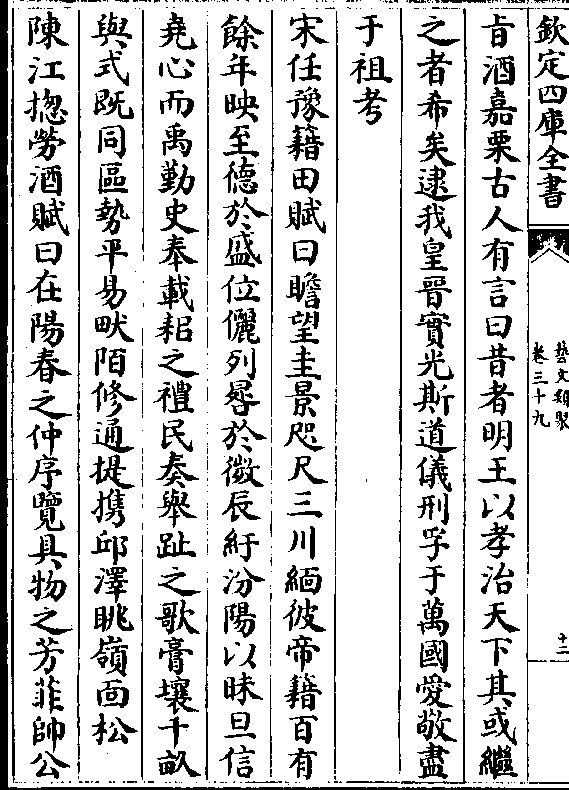 欽定四庫全書
藝文類聚
卷三十九
十二
旨酒嘉栗古人有言曰昔者明王以孝治天下其或繼
之者希矣逮我皇晉實光斯道儀刑孚于萬國愛敬盡
于祖考
宋任豫籍田賦曰瞻望圭景咫尺三川緬彼帝籍百有
餘年映至德於盛位儷列晷於微辰紆汾陽以昧旦信
堯心而禹勤史奉載耜之禮民奏舉趾之歌膏壤千畝
與式既同區勢平易畎陌修通提携邱澤眺嶺面松
陳江揔勞酒賦曰在陽春之仲序覽具物之芳菲帥公